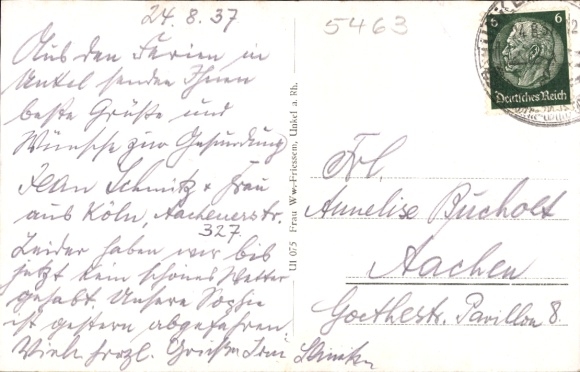 24. 8. 37
Aus den Ferien in
Unkel senden Ihnen
beste Grüße und
Wünsche zur Gesundung
Jean Schmitz + Frau
aus Köln, Aachenerstr.
327.
Leider haben wir bis
jetzt kein schönes Wetter
gehabt. Unsere Sophie
ist gestern abgefahren.
Viele herzl. Grüße
5463
6 6
Deutsches Reich
UI 075 Frau Ww. Friessem, Unkel a. Rh.
Frl.
Annelise Bucholt
Aachen
Goethestr. Pavillon 8.